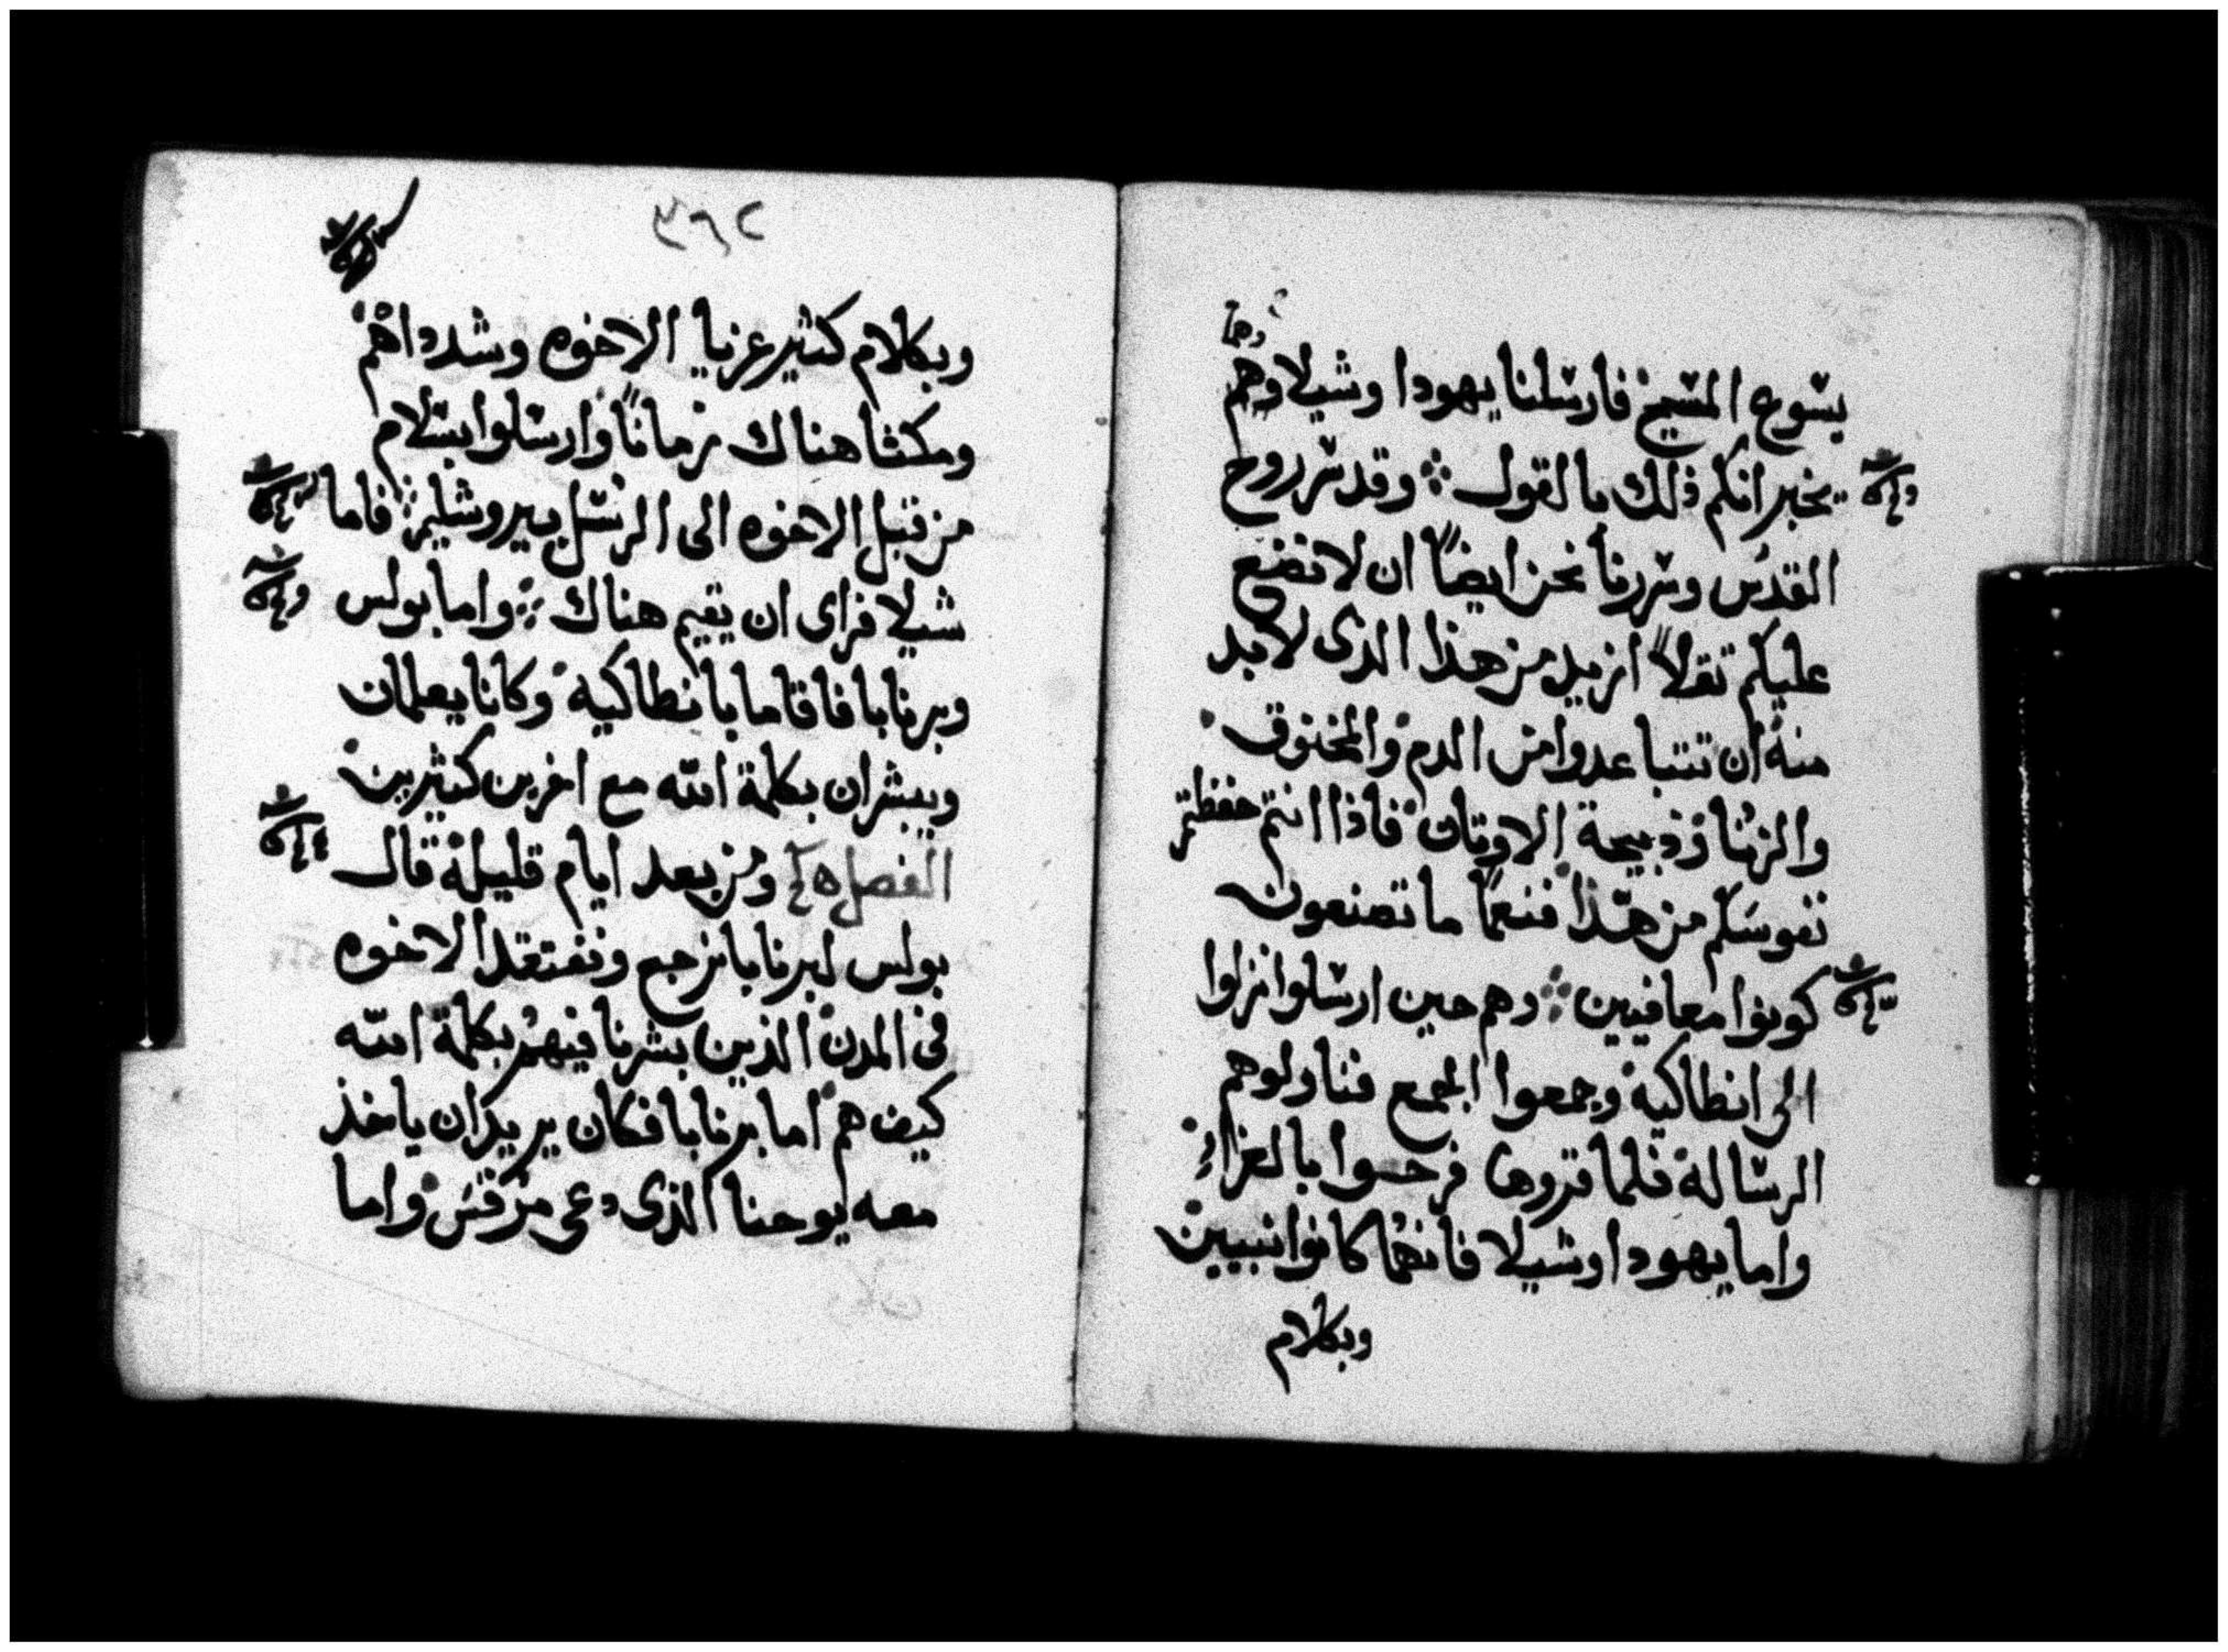 وهما
يسوع المسيح فارسلنا يهودا وشيلا وهم
يخبرانكم ذلك مالقول ⁘ وقد سر روح
القدس وسررنا نحن ايضاً ان لا نضع
عليكم ثقلاً ازيد من هذا الذى لا بد
منه ان تتباعدوا من الدم والمخنوق
والزنا وذبيحة الاوثان فاذا انتم حفظتم
نفوسكم من هذا فنعما ما تصنعون
كونوا معافيين ⁘ وهم حين ارسلوا نزلوا
الى انطاكية وجمعوا الجمع فناولوهم
الرسالة فلما قروها فرحوا بالعزاء
واما يهودا وشيلا فانهما كانوا نبيين
وبكلام
٣٦٢
وبكلام كثير عزيا الاخوه وشدداهم
ومكثا هناك زماناً وارسلوا بسلام
من قبل الاخوه الى الرسل بيروشليم ⁘ فاما
شيلا فراى ان يقيم هناك ⁘ واما بولس
وبرنابا فاقاما بانطاكية وكانا يعلمان
ويبشران بكلمة الله مع اخرين كثيرين
الفصل ومن بعد ايام قليلة قال
بولس لبرنابا نرجع ونفتقد الاخوه
فى المدن الذين بشرنا فيهم بكلمة الله
كيف هم اما برنابا فكان يريد ان ياخذ
معه يوحنا الذى دعى مرقس واما